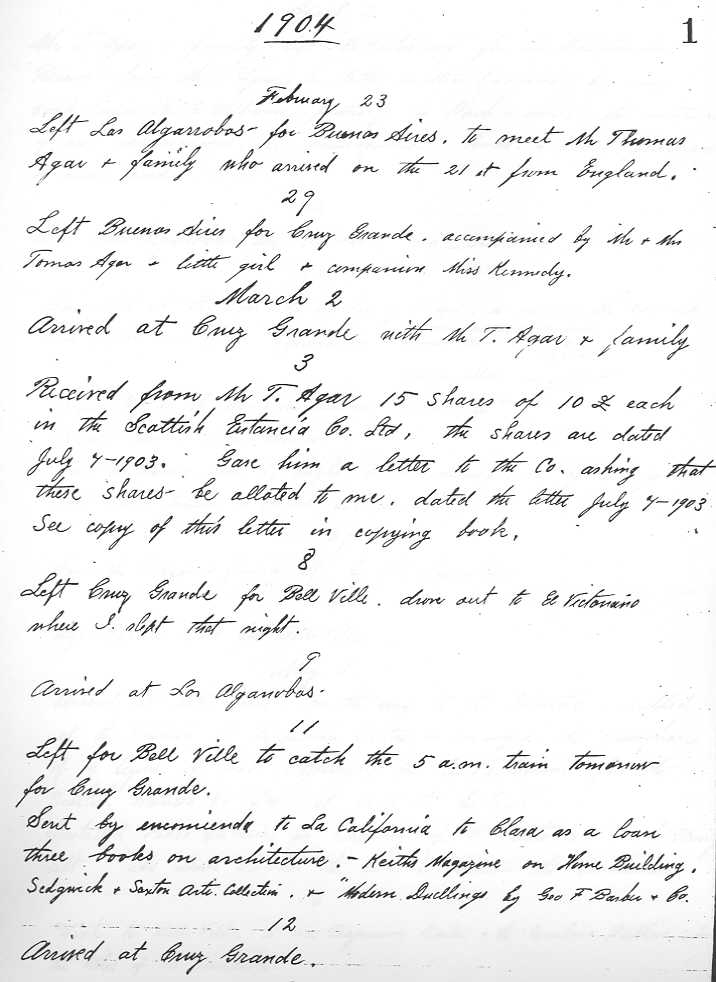 1904
1
February 23
Left Los Algarrobos - for Buenos Aires. to meet Mr Thomas
Agar + family who arrived on the 21st from England.
29
Left Buenos Aires for Cruz Grande. accompanied by Mr + Mrs
Tomas Agar + little girl + companion Miss Kennedy.
March 2
Arrived at Cruz Grande with Mr T. Agar + family
3
Received from Mr T. Agar 15 shares of 10 £ each
in the Scottish Estancia Co. Ltd, the shares are dated
July 7-1903. Gave him a letter to the Co. asking that
these shares - be alloted to me. dated the letter July 7-1903
See copy of this letter in copying book.
8
Left Cruz Grande for Bell Ville. drove out to El Victoriano
where I slept that night.
9
Arrived at Los Algarrobos -
11
Left for Bell Ville to catch the 5 a.m. train tomorrow
for Cruz Grande.
Sent by encomienda to La California to Clara as a loan
three books on architecture. - Keiths Magazine on Home Building.
Sedgwick + Saxton Arts. Collection. + "Modern Dwellings by Geo F Barber + Co.
12
Arrived at Cruz Grande.